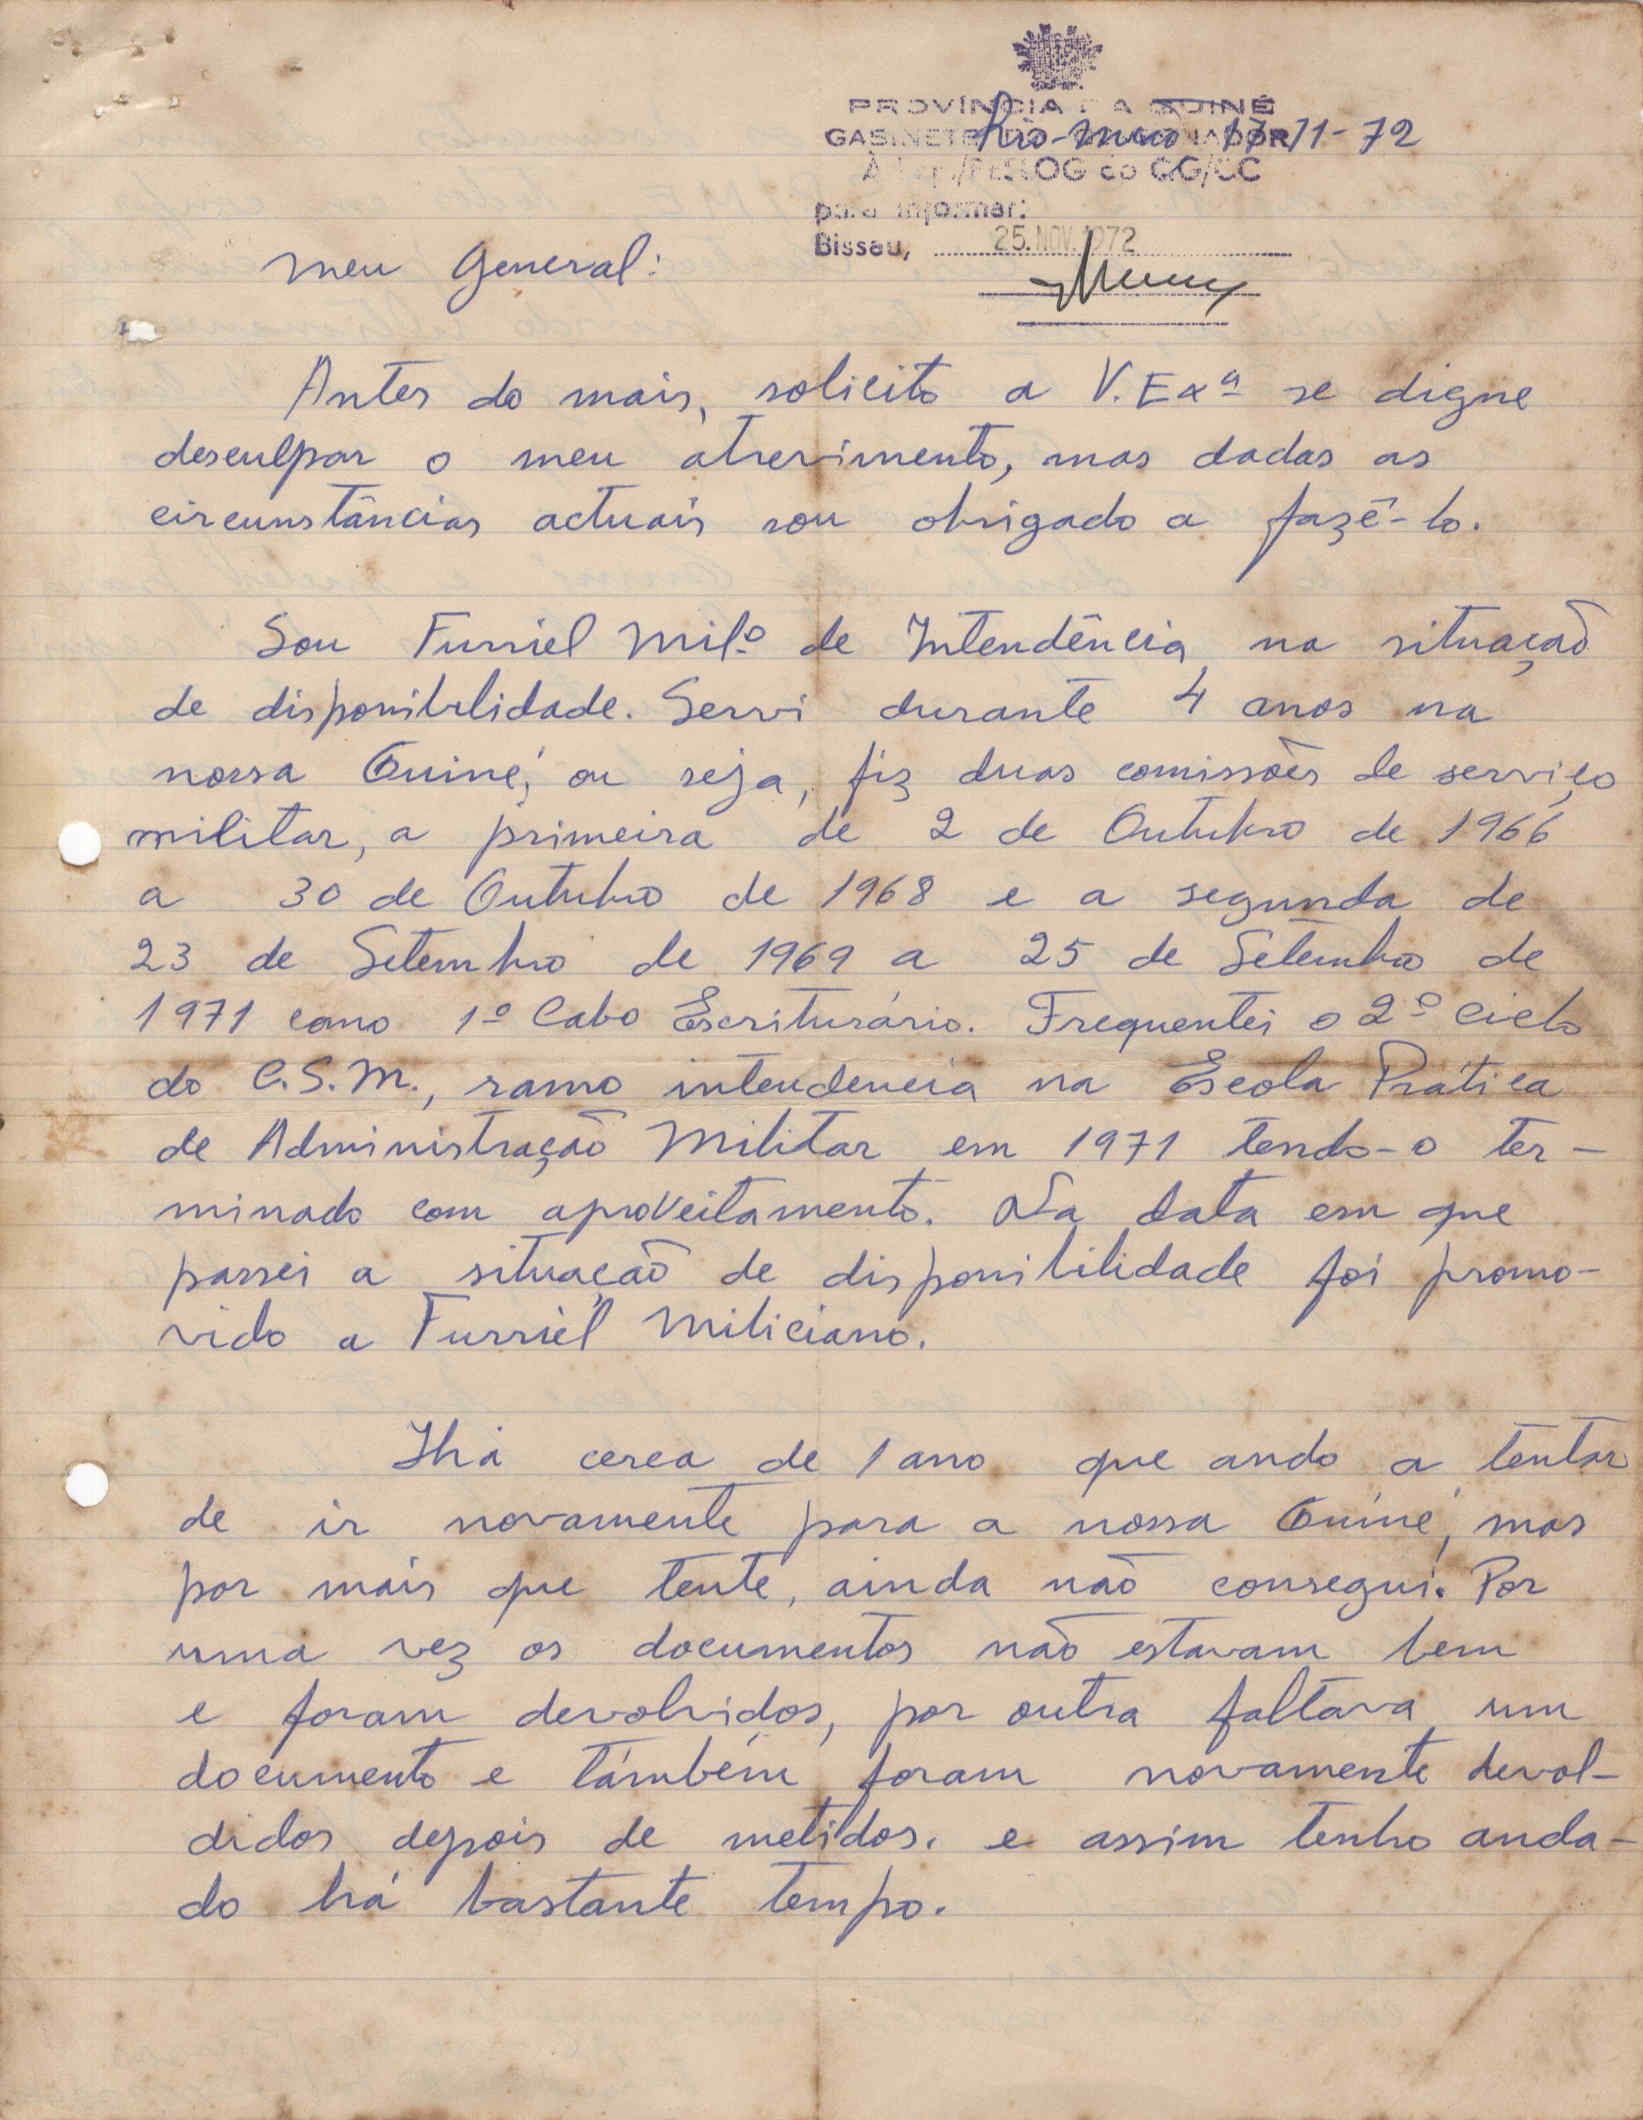 PROVÍNCIA DA GUINÉ
GABINETE DO GOVERNADOR
Rio-Mau 17/11-72
À Rep./PESLOG do QG/CC
para informar:
Bissau, 25.NOV.1972
Meu General:
Antes do mais, solicito a V. Exª se digne
desculpar o meu atrevimento, mas dadas as
circunstâncias actuais sou obrigado a fazê-lo.
Sou Furriel Milº de Intendência, na situação
de disponibilidade. Servi durante 4 anos na
nossa Guiné, ou seja, fiz duas comissões de serviço
militar, a primeira de 2 de Outubro de 1966
a 30 de Outubro de 1968 e a segunda de
23 de Setembro de 1969 a 25 de Setembro de
1971 como 1º Cabo Escriturário. Frequentei o 2º Ciclo
do C.S.M., ramo intendencia na Escola Prática
de Administração Militar em 1971 tendo-o ter-
minado com aproveitamento. Na data em que
passei a situação de disponibilidade foi promo-
vido a Furriel Miliciano.
Há cerca de 1 ano que ando a tentar
de ir novamente para a nossa Guiné, mas
por mais que tente, ainda não consegui. Por
uma vez os documentos não estavam bem
e foram devolvidos, por outra faltava um
documento e também foram novamente devol-
didos depois de metidos. e assim tenho anda-
do há bastante tempo.